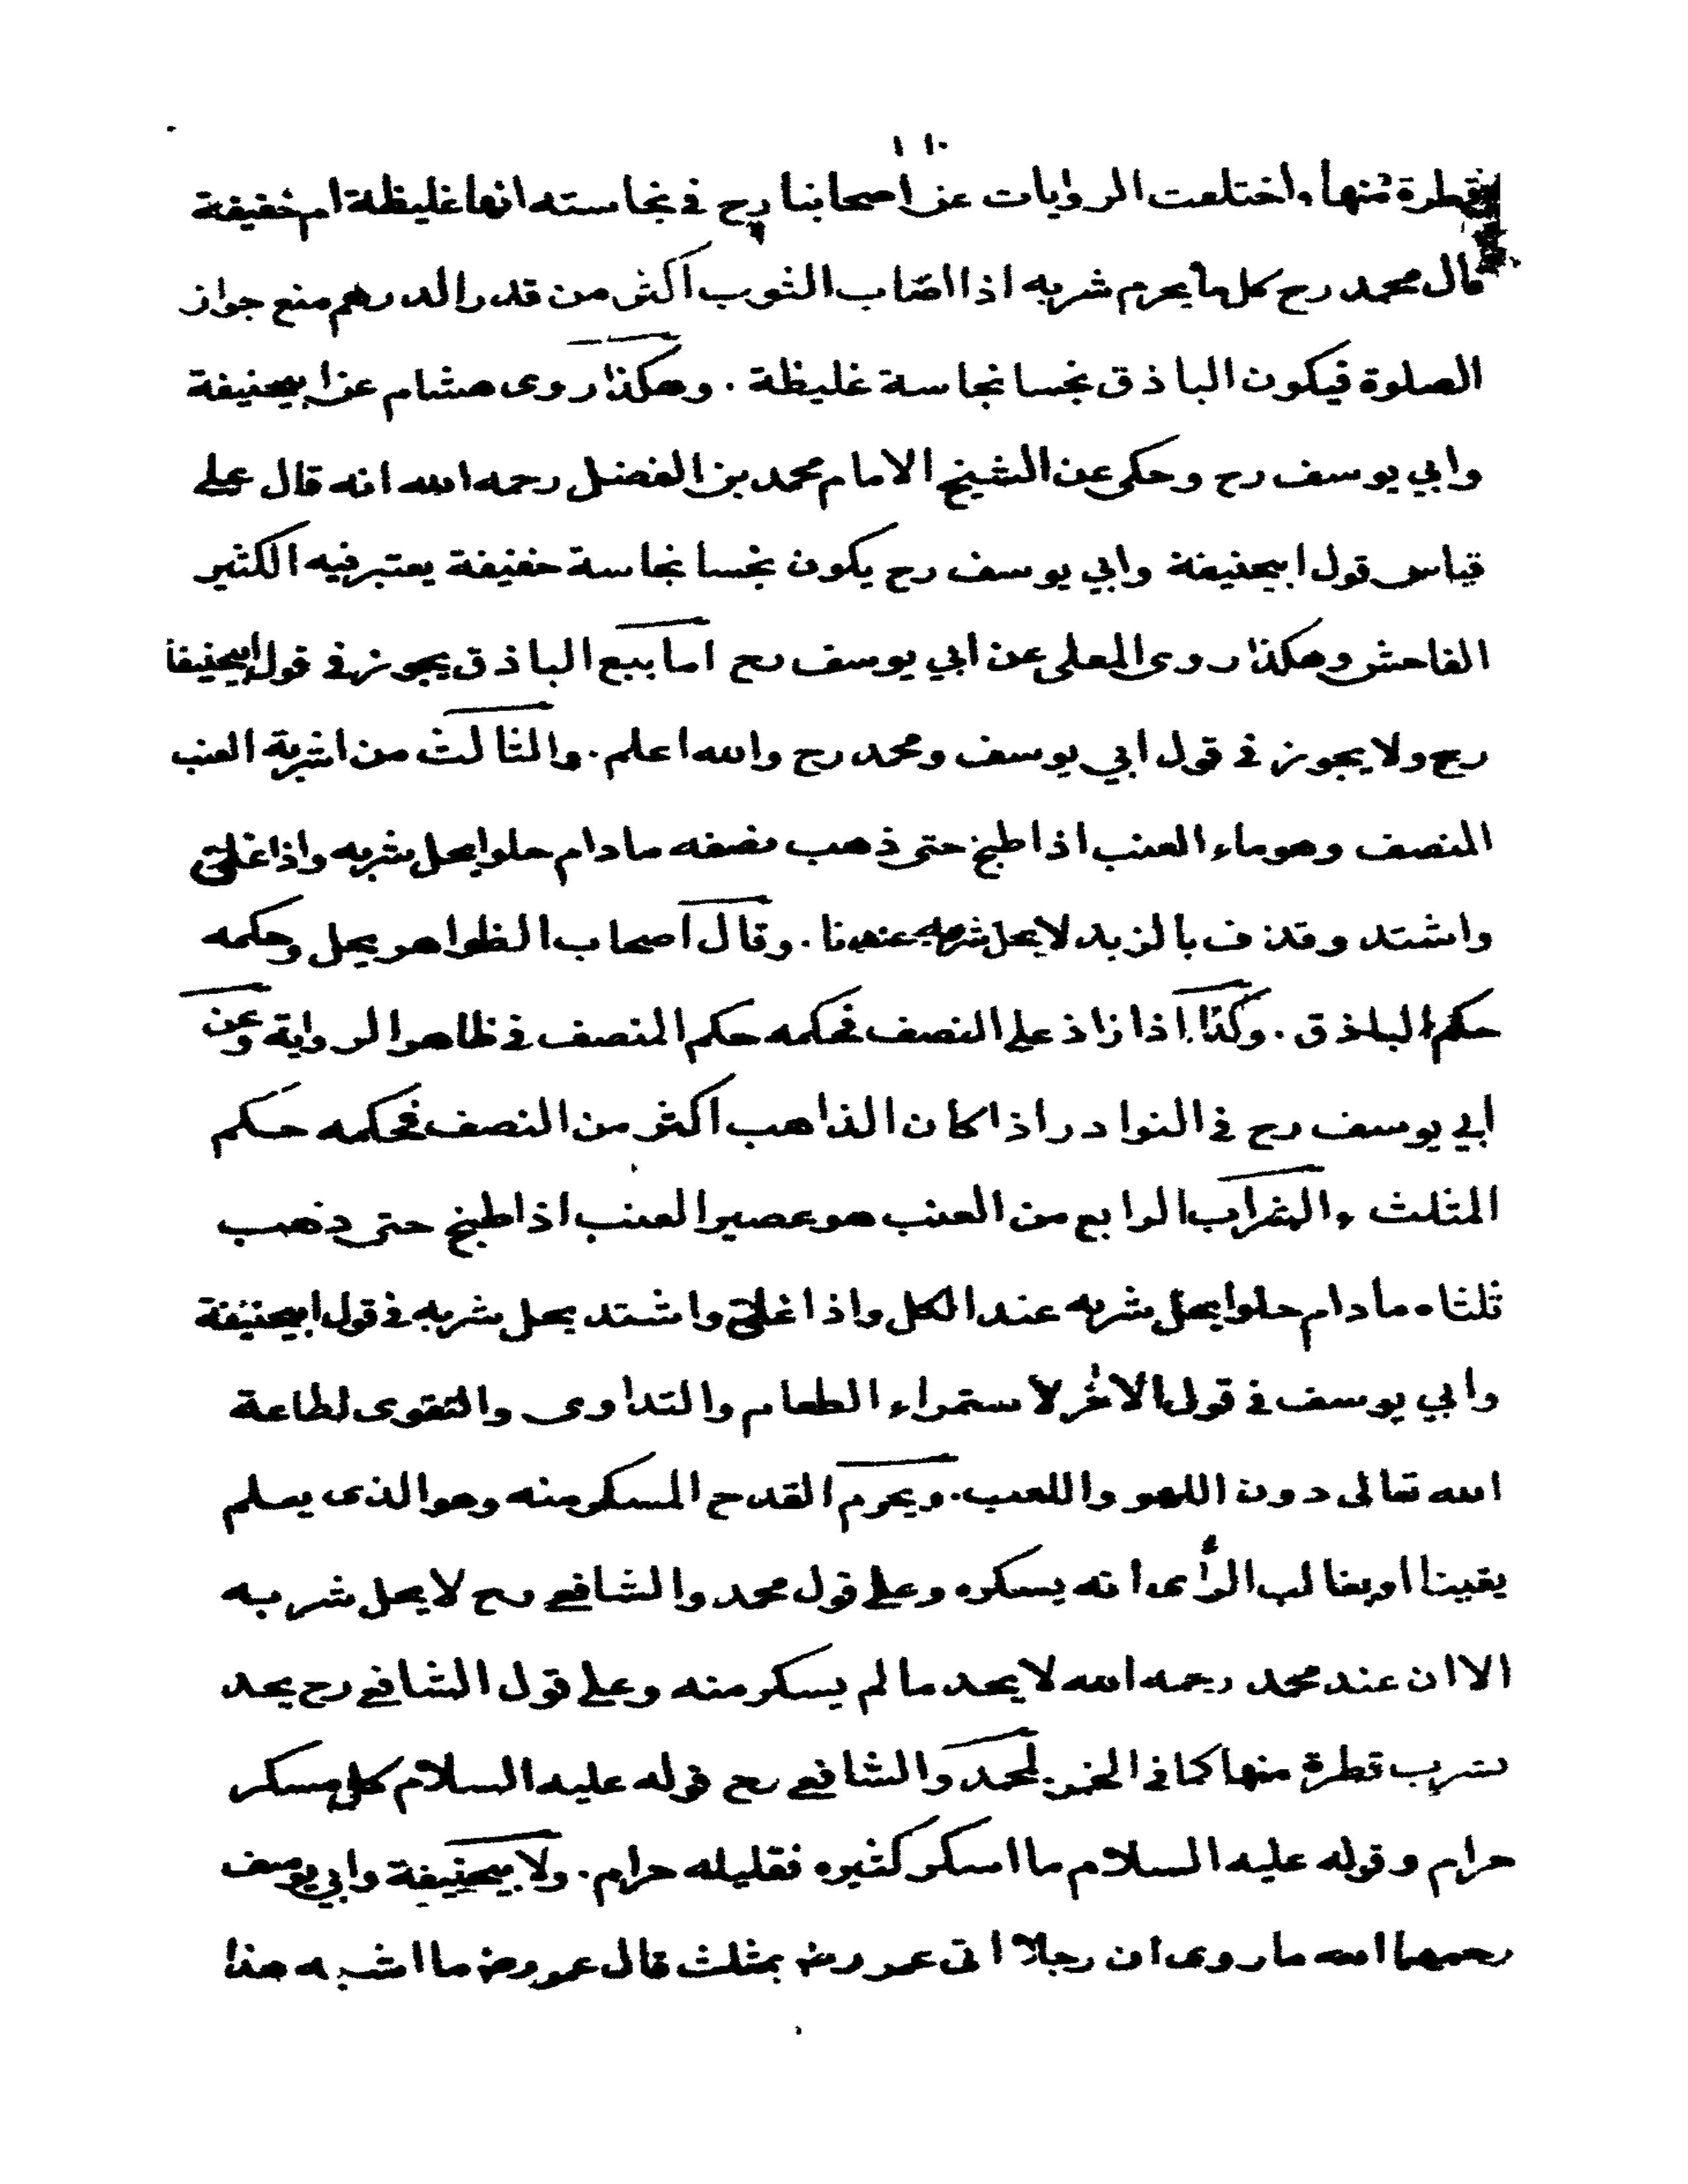 قطرة منها واختلفت الروايات عن اصحابنا رح في نجاسته انها غليظة ام خفيفة
قال محمد رح كل ما يحرم شربه اذا اصاب الثوب اكثر من قدر الدرهم منع جواز
الصلوة فيكون الباذق نجسا نجاسة غليظة . وهكذا روى هشام عن ابيحنيفة
وابي يوسف رح وحكى عن الشيخ الامام محمد بن الفضل رحمه الله انه قال على
قياس قول ابيحنيفة وابي يوسف رح يكون نجسا نجاسة خفيفة يعتبر فيه الكثير
الفاحش وهكذا روى المعلى عن ابي يوسف رح اما بيع الباذق يجوز في قول ابيحنيفة
رح ولا يجوز في قول ابي يوسف ومحمد رح والله اعلم . والثالث من اشربة العنب
المنصف وهو ماء العنب اذا طبخ حتى ذهب نصفه ما دام حلوا يحل شربه واذا غلى
واشتد وقذف بالزبد لا يحل شربه عندنا . وقال اصحاب الظواهر يحل وحكمه
حكم الباذق . وكذا اذا زاد على النصف فحكمه حكم المنصف في ظاهر الرواية وعن
ابي يوسف رح في النوادر اذا كان الذاهب اكثر من النصف فحكمه حكم
المثلث والشراب الرابع من العنب هو عصير العنب اذا طبخ حتى ذهب
ثلثاه ما دام حلوا يحل شربه عند الكل واذا غلى واشتد يحل شربه في قول ابيحنيفة
وابي يوسف في قول الاخر لاستمراء الطعام والتداوى والتقوى لطاعة
الله تعالى دون اللهو واللعب . ويحرم القدح المسكر منه وهو الذى يعلم
يقينا او بغالب الرأى انه يسكره وعلى قول محمد والشافعي رح لا يحل شربه
الا ان عند محمد رحمه الله لا يحد ما لم يسكر منه وعلى قول الشافعي رح يحد
بشرب قطرة منها كما في الخمر . لمحمد والشافعي رح قوله عليه السلام كل مسكر
حرام وقوله عليه السلام ما اسكر كثيره فقليله حرام . ولابيحنيفة وابي يوسف
رحمهما الله ما روى ان رجلا اتى عمر رض بمثلث قال عمر رض ما اشبه هذا